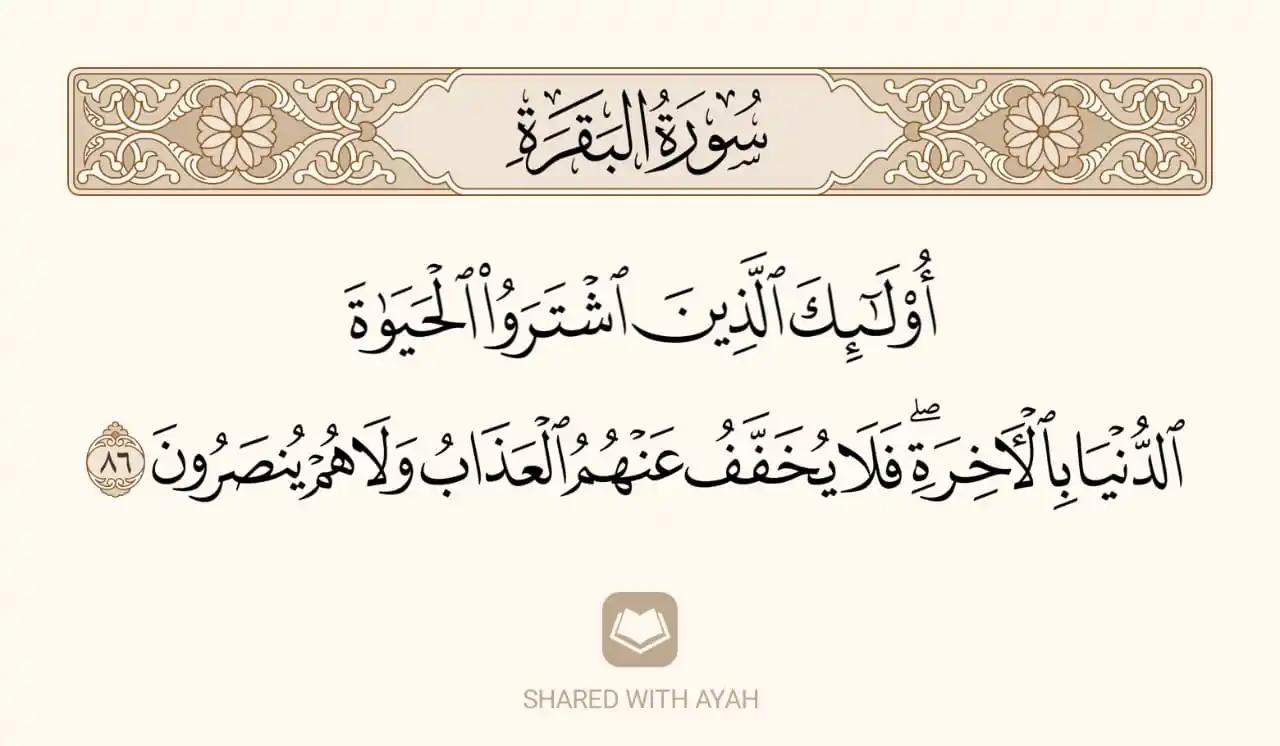 سُورَةُ الْبَقَرَةِ
أُو۟لَـٰٓئِكَ ٱلَّذِينَ ٱشْتَرَوُا۟ ٱلْحَيَوٰةَ
ٱلدُّنْيَا بِٱلْـَٔاخِرَةِ ۖ فَلَا يُخَفَّفُ عَنْهُمُ ٱلْعَذَابُ وَلَا هُمْ يُنصَرُونَ ٨٦
SHARED WITH AYAH